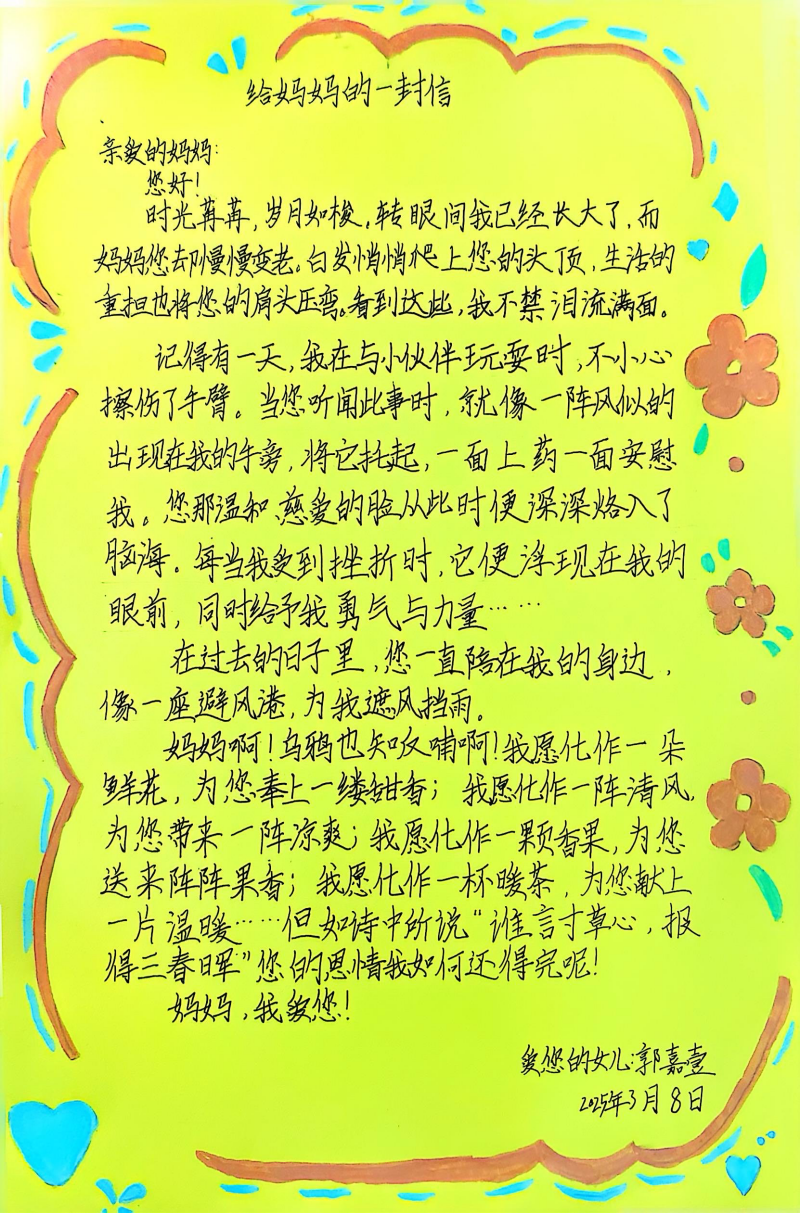 给妈妈的一封信
亲爱的妈妈:
您好!
时光苒苒,岁月如梭,转眼间我已经长大了,而
妈妈您却慢慢变老。白发悄悄爬上您的头顶,生活的
重担也将您的肩头压弯。看到这些,我不禁泪流满面。
记得有一天,我在与小伙伴玩耍时,不小心
擦伤了手臂。当您听闻此事时,就像一阵风似的
出现在我的身旁,将它托起,一面上药一面安慰
我。您那温和慈爱的脸从此时便深深烙入了
脑海。每当我受到挫折时,它便浮现在我的
眼前,同时给予我勇气与力量……
在过去的日子里,您一直陪在我的身边,
像一座避风港,为我遮风挡雨。
妈妈啊!乌鸦也知反哺啊!我愿化作一朵
鲜花,为您奉上一缕甜香;我愿化作一阵清风,
为您带来一阵凉爽;我愿化作一颗香果,为您
送来阵阵果香;我愿化作一杯暖茶,为您献上
一片温暖……但如诗中所说“谁言寸草心,报
得三春晖”您的恩情我如何还得完呢!
妈妈,我爱您!
爱您的女儿:郭嘉壹
2025年3月8日